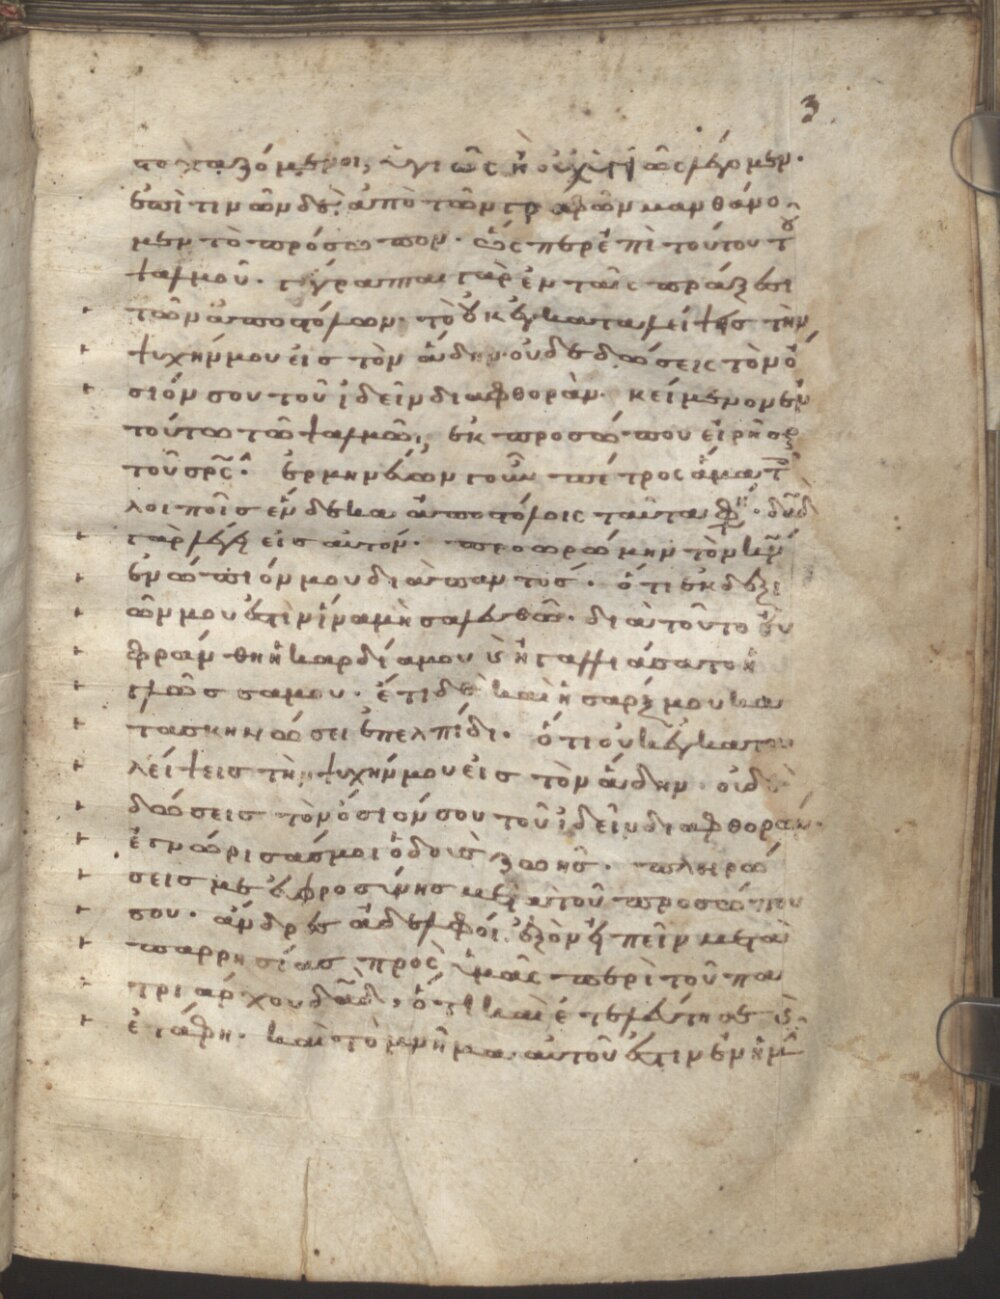 3
στοχαζόμενοι, ὑγιῶς ἢ οὐχ ὑγιῶς λέγομεν.
ἐπί τινων δὲ, ἀπὸ τῶν γραφῶν μανθάνο
μεν τὸ πρόσωπον. ὥσπερ ἐπὶ τούτου τοῦ
ψαλμοῦ. γέγραπται γὰρ ἐν ταῖς πράξεσι
τῶν ἀποστόλων. τὸ οὐκ ἐγκαταλείψεις τὴν
ψυχήν μου εἰς τὸν ἅδην. οὐδὲ δώσεις τὸν ὅ
σιόν σου τοῦ ἰδεῖν διαφθορὰν. κείμενον ἐν
τούτω τῶ ψαλμῶ, ἐκ προσώπου εἰρῆσθαι
τοῦ σρς. ἑρμηνεύων γοῦν πέτρος ἅμα τοῖς
λοιποῖς ἕνδεκα ἀποστόλοις ταῦτα φη. δαδ
γὰρ λέγει εἰς αὐτόν. προωρώμην τὸν κν
ἐνώπιόν μου διὰ παντός. ὅτι ἐκ δεξι
ῶν μου ἐστὶν ἵνα μὴ σαλευθῶ. διὰ τοῦτο ηὐ
φράνθη ἡ καρδία μου κ ἠγαλλιάσατο ἡ
γλῶσσα μου. ἔτι δὲ καὶ ἡ σάρξ μου κα
τασκηνώσει ἐπ ελπίδι. ὅτι οὐκ ἐγκατα
λείψεις τὴν ψυχήν μου εἰς τὸν ἅδην. οὐδὲ
δώσεις τὸν ὅσιόν σου τοῦ ἰδεῖν διαφθοράν.
ἐγνώρισάς μοι ὁδοὺς ζωῆς. πληρώ
σεις με εὐφροσύνης μετὰ τοῦ προσώπου
σου. ἄνδρες ἀδελφοί. ἐξὸν εἰπεῖν μετὰ
παρρησίας πρὸς ὑμᾶς περὶ τοῦ πα
τριάρχου δαδ, ὅτι καὶ ἐτελεύτησε κ
ἐτάφη. καὶ τὸ μνῆμα αὐτοῦ ἐστιν ἐν ἡμῖν